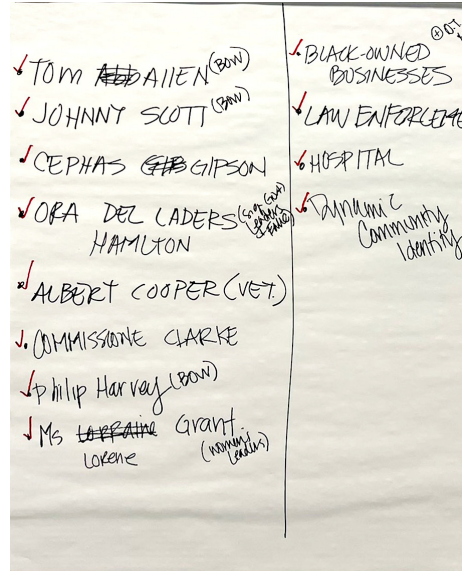 TOM ALLEN (BOW)
JOHNNY SCOTT (BOW)
CEPHAS GIPSON
ORA DEL LADERS
HAMLTON
ALBERT COOPER (VET.)
COMMISSIONE CLARKE
Philip Harvey (BOW)
Ms Lorraine Grant
LORENE
(women
Leaders)
BLACK-OWNED
BUSINESSES
LAW ENFORCEME
HOSPITAL
Dynamic
Community
Identity